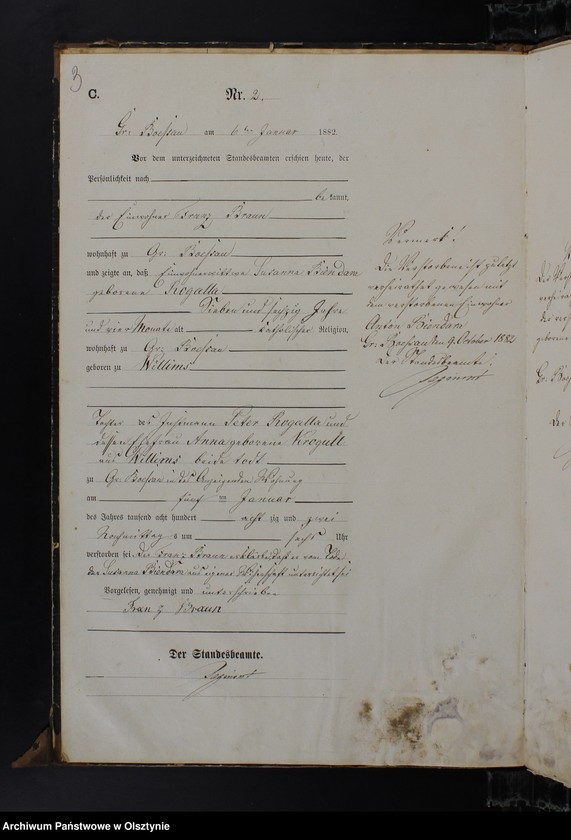 3
C.
Nr. 2.
Gr. Boessau am 6ten Januar 1882.
Vor dem unterzeichneten Standesbeamten erschien heute, der
Persönlichkeit nach
bekannt,
der Einwohner Franz Braun
wohnhaft zu Gr. Boessau
und zeigte an, daß Einwohnerwittwe Susanna Biendara
geborene Rogalla
Sieben und sechzig Jahre
und vier Monate alt katholischer Religion,
wohnhaft zu Gr. Boessau
geboren zu Willims
Tochter des Peter Rogalla und
dessen Ehefrau Anna geborene
aus Willims beide todt
zu Gr. Boessau in des Anzeigenden Wohnung
am fünf ten Januar
des Jahres tausend acht hundert acht zig und zwei
Nachmittags um sechs Uhr
verstorben sei. Der Franz Braun erklärte, daß er vom Tode
der Susanna Biendara aus eigener Wissenschaft unterrichtet sei
Vorgelesen, genehmigt und unterschrieben
Franz Braun
Der Standesbeamte.
Vermerk!
Die Verstorbene ist zuletzt
verheirathet gewesen mit
dem verstorbenen Einwohner
Anton Biendara
Gr. Boessau den 9. October 1882
Der Standesbeamte.
Archiwum Państwowe w Olsztynie